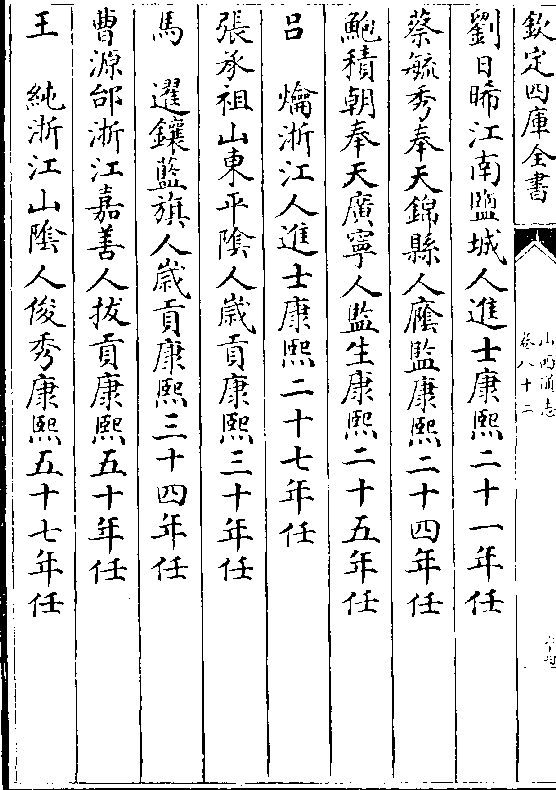 欽定四庫全書
山西通志
卷八十二
劉日晞江南盬城人進士康熙二十一年任
蔡毓秀奉天錦縣人廕監康熙二十四年任
鮑積朝奉天廣寧人監生康熙二十五年任
吕　爚浙江人進士康熙二十七年任
張承祖山東平隂人歲貢康熙三十年任
馬　選鑲藍旗人歲貢康熙三十四年任
曹源邰浙江嘉善人拔貢康熙五十年任
王　純浙江山隂人俊秀康熙五十七年任